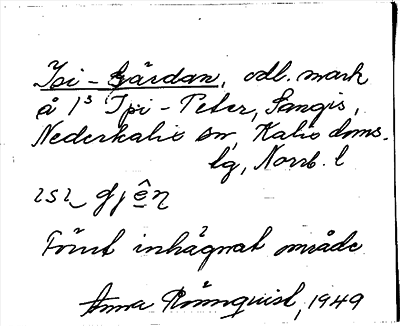 Ipi-Gärdan, odl. mark
å 1³ Ipi-Peter, Sangis,
Nederkalix sn, Kalix doms.
lg, Norrb. l
Förut inhägnat område
Anna Rönnquist, 1949